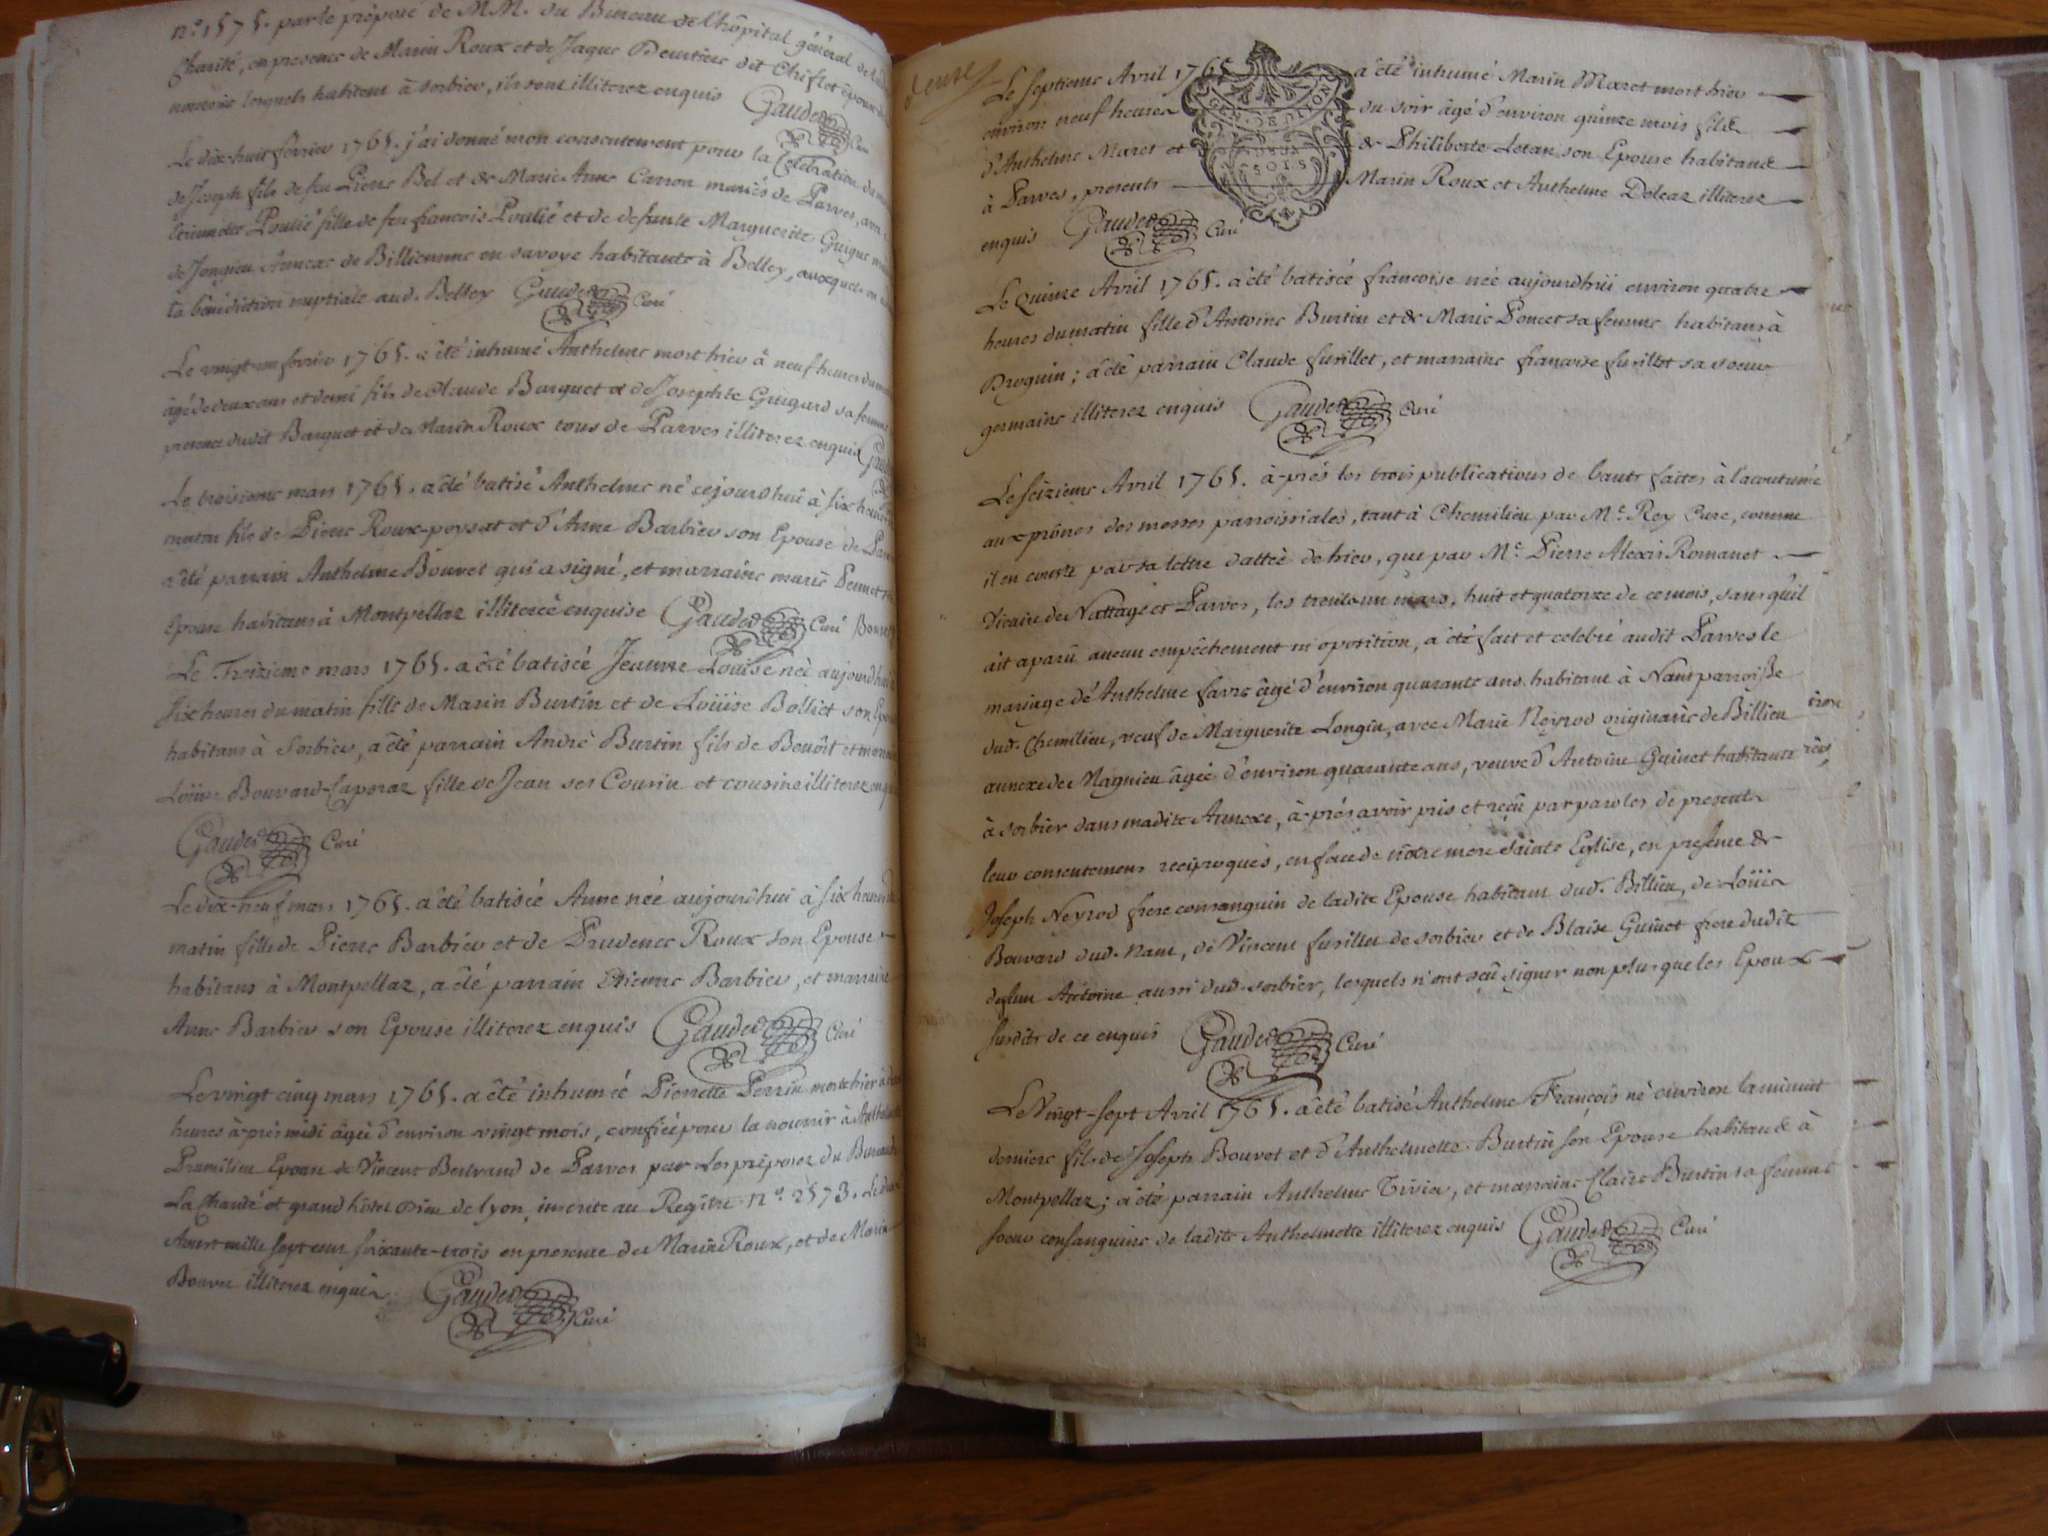 n.° 1575. par le préposé de MM. du Bureau de l'hôpital général de la
Charité, en presence de Marin Roux et de Jaque Peurtiere dit Chiflet époux de
nourrice lesquels habitent à Sorbier, ils sont illiterez enquis Gauder Curé
Le dix-huit fevrier 1765. j'ai donné mon consentement pour la Celebration du
de Joseph fils de feu Pierre Bel et de Marie Anne Carron mariés de Parves, avec
Poulié fille de feu françois Poulié et de defunte Marguerite Guigue
de Jongieu Annexe de Billieme en Savoye habitante à Belley, auxquels on
la bénédiction nuptiale aud. Belley Gauder Curé
Le vingt-un fevrier 1765. a été inhumé Anthelme mort hier à neuf heures du
âgé de deux ans et demi fils de Claude Barquet & de Josephte Guigard sa femme
presence dudit Barquet et de Marin Roux tous de Parves illiterez enquis
Le troisieme mars 1765. a été batisé Anthelme né cejourd'hui à six heures
matin fils de Pierre Roux-poysat et d'Anne Barbier son Epouse de
a été parrain Anthelme Bouvet qui a signé, et marraine marie
Epouse habitans à Montpellaz illiterée enquise Gauder Curé
Le Treizieme mars 1765. a été batisée Jeanne Louise née aujourd'hui
six heures du matin fille de Marin Burtin et de Loüise Bolliet son Epouse
habitans à Sorbier, a été parrain André Burtin fils de Benoît et marraine
Loüise Bouvard-Caporaz fille de Jean ses Cousin et cousine illiterez enquis
Gauder Curé
Le dix-neuf mars 1765. a été batisée Anne née aujourd'hui à six heures
matin fille de Pierre Barbier et de Prudence Roux son Epouse
habitans à Montpellaz, a été parrain Etienne Barbier, et marraine
Anne Barbier son Epouse illiterez enquis Gauder Curé
Le vingt cinq mars 1765. a été inhumée Pierrette Perrin morte hier à
heures après midi âgée d'environ vingt mois, confiée pour la nourrir à
Pramilieu Epouse de Vincent Bertrand de Parves par Les préposez du Bureau
La Charité et grand hôtel Dieu de Lyon, inscrite au Registre n.° 2573. Le
Aoust mille sept cent soixante-trois en presence de Marin Roux, et de Marin
Bouvet illiterez enquis. Gauder Curé
Le septieme Avril 1765 a été inhumé Marin Maret mort hier
environ neuf heures du soir âgé d'environ quinze mois fils
d'Anthelme Maret et de Philiberte Letan son Epouse habitans
à Parves, presents Marin Roux et Anthelme Deleaz illiterez
enquis Gauder Curé
GEN. DE DIJON
DEUX
SOLS
Le Quinze Avril 1765. a été batisée francoise née aujourdhüi environ quatre
heures du matin fille d'Antoine Burtin et de Marie Poncet sa femme habitans à
Proguin; a été parrain Claude furillet, et marraine francoise furillet sa soeur
germaine illiterez enquis Gauder Curé
Le seizieme Avril 1765. après les trois publications de bans faites à la coutumé
aux prônes des messes parroissiales, tant à Chemilieu par M.e Rey Curé, comme
il en conste par sa lettre dattée de hier, que par M.e Pierre Alexis Romanet
Vicaire de Nattage et Parves, les trente un mars, huit et quatorze de ce mois, sans qu'il
ait aparu aucun empêchement ni oposition, a été fait et celebré audit Parves le
mariage de Anthelme favre âgé d'environ quarante ans habitant à Nant parroisse
dud. Chemilieu, veuf de Marguerite Longin, avec Marie Neyrod originaire de Billieu
annexe de Magnieu âgée d'environ quarante ans, veuve d'Antoine Guinet habitante
à Sorbier dans madite Annexe, après avoir pris et reçû par paroles de present
leur consentemens reciproques, en face de nôtre mere Sainte Eglise, en presence de
Joseph Neyrod frere consanguin de ladite Epouse habitant dud. Billieu, de Loüis
Bouvard dud. Nant, de Vincent furillet de Sorbier et de Blaise Guinet frere dudit
defunt Antoine aussi dud. Sorbier, lesquels n'ont sçû signer non plus que les Epoux
susdits de ce enquis Gauder Curé
Le Vingt-sept Avril 1765. a été batisé Anthelme François né environ la minuit
derniere fils de Joseph Bouvet et d'Anthelmette Burtin son Epouse habitans à
Montpellaz; a été parrain Anthelme Tivier, et marraine Claire Burtin sa femme
soeur consanguine de ladite Anthelmette illiterez enquis Gauder Curé